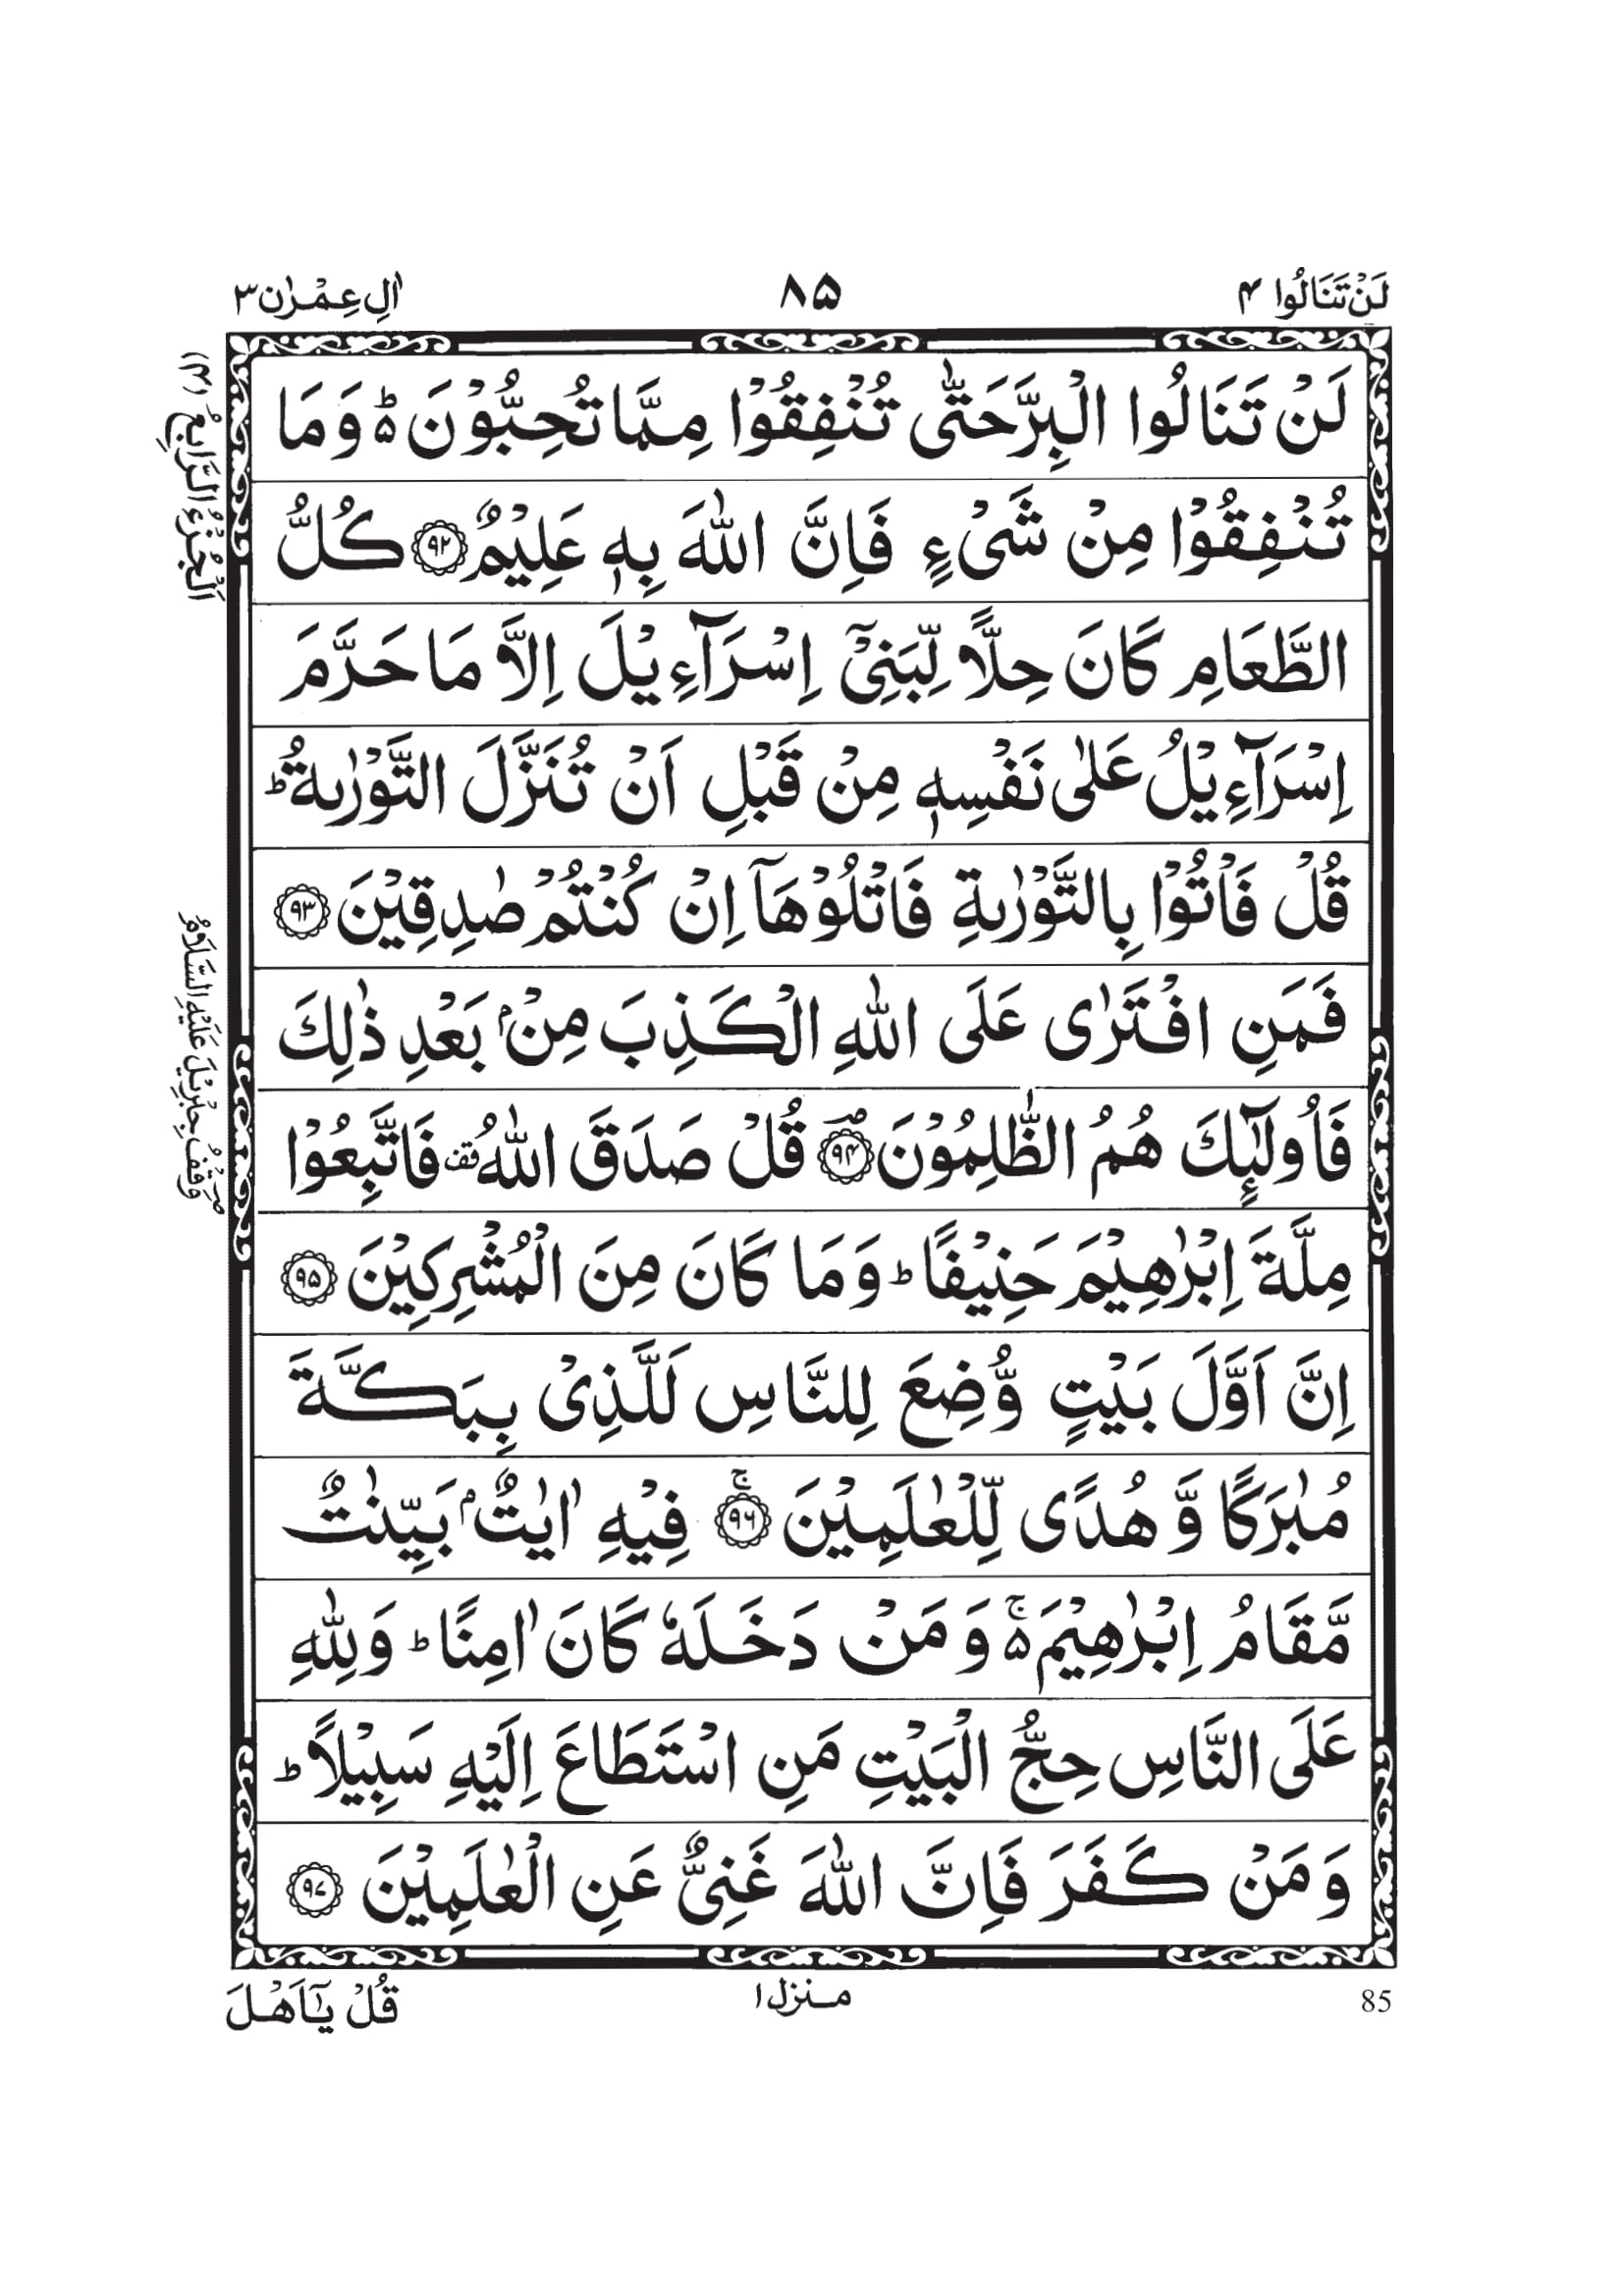 لَنْ تَنَالُوا ۴
۸۵
اٰلِ عِمْرٰن ۳
لَنْ تَنَالُوا الْبِرَّ حَتّٰى تُنْفِقُوْا مِمَّا تُحِبُّوْنَ ۵ؕ وَمَا
تُنْفِقُوْا مِنْ شَىْءٍ فَاِنَّ اللّٰهَ بِهٖ عَلِيْمٌ ﴿۹۲﴾ كُلُّ
الطَّعَامِ كَانَ حِلًّا لِّبَنِىْٓ اِسْرَآءِيْلَ اِلَّا مَا حَرَّمَ
اِسْرَآءِيْلُ عَلٰى نَفْسِهٖ مِنْ قَبْلِ اَنْ تُنَزَّلَ التَّوْرٰىةُ ؕ
قُلْ فَاْتُوْا بِالتَّوْرٰىةِ فَاتْلُوْهَآ اِنْ كُنْتُمْ صٰدِقِيْنَ ﴿۹۳﴾
فَمَنِ افْتَرٰى عَلَى اللّٰهِ الْكَذِبَ مِنْۢ بَعْدِ ذٰلِكَ
فَاُولٰٓئِكَ هُمُ الظّٰلِمُوْنَ ﴿۹۴﴾ؔ قُلْ صَدَقَ اللّٰهُ قف فَاتَّبِعُوْا
مِلَّةَ اِبْرٰهِيْمَ حَنِيْفًا ؕ وَمَا كَانَ مِنَ الْمُشْرِكِيْنَ ﴿۹۵﴾
اِنَّ اَوَّلَ بَيْتٍ وُّضِعَ لِلنَّاسِ لَلَّذِىْ بِبَكَّةَ
مُبٰرَكًا وَّهُدًى لِّلْعٰلَمِيْنَ ﴿۹۶﴾ۚ فِيْهِ اٰيٰتٌۢ بَيِّنٰتٌ
مَّقَامُ اِبْرٰهِيْمَ ۵ۚ وَمَنْ دَخَلَهٗ كَانَ اٰمِنًا ؕ وَلِلّٰهِ
عَلَى النَّاسِ حِجُّ الْبَيْتِ مَنِ اسْتَطَاعَ اِلَيْهِ سَبِيْلًا ؕ
وَمَنْ كَفَرَ فَاِنَّ اللّٰهَ غَنِىٌّ عَنِ الْعٰلَمِيْنَ ﴿۹۷﴾
اَلْجُزْءُ الرَّابِعُ (۴)
وَقْفُ جِبْرِيْلَ عَلَيْهِ السَّلَامُ
85
منزل ۱
قُلْ يٰٓاَهْلَ